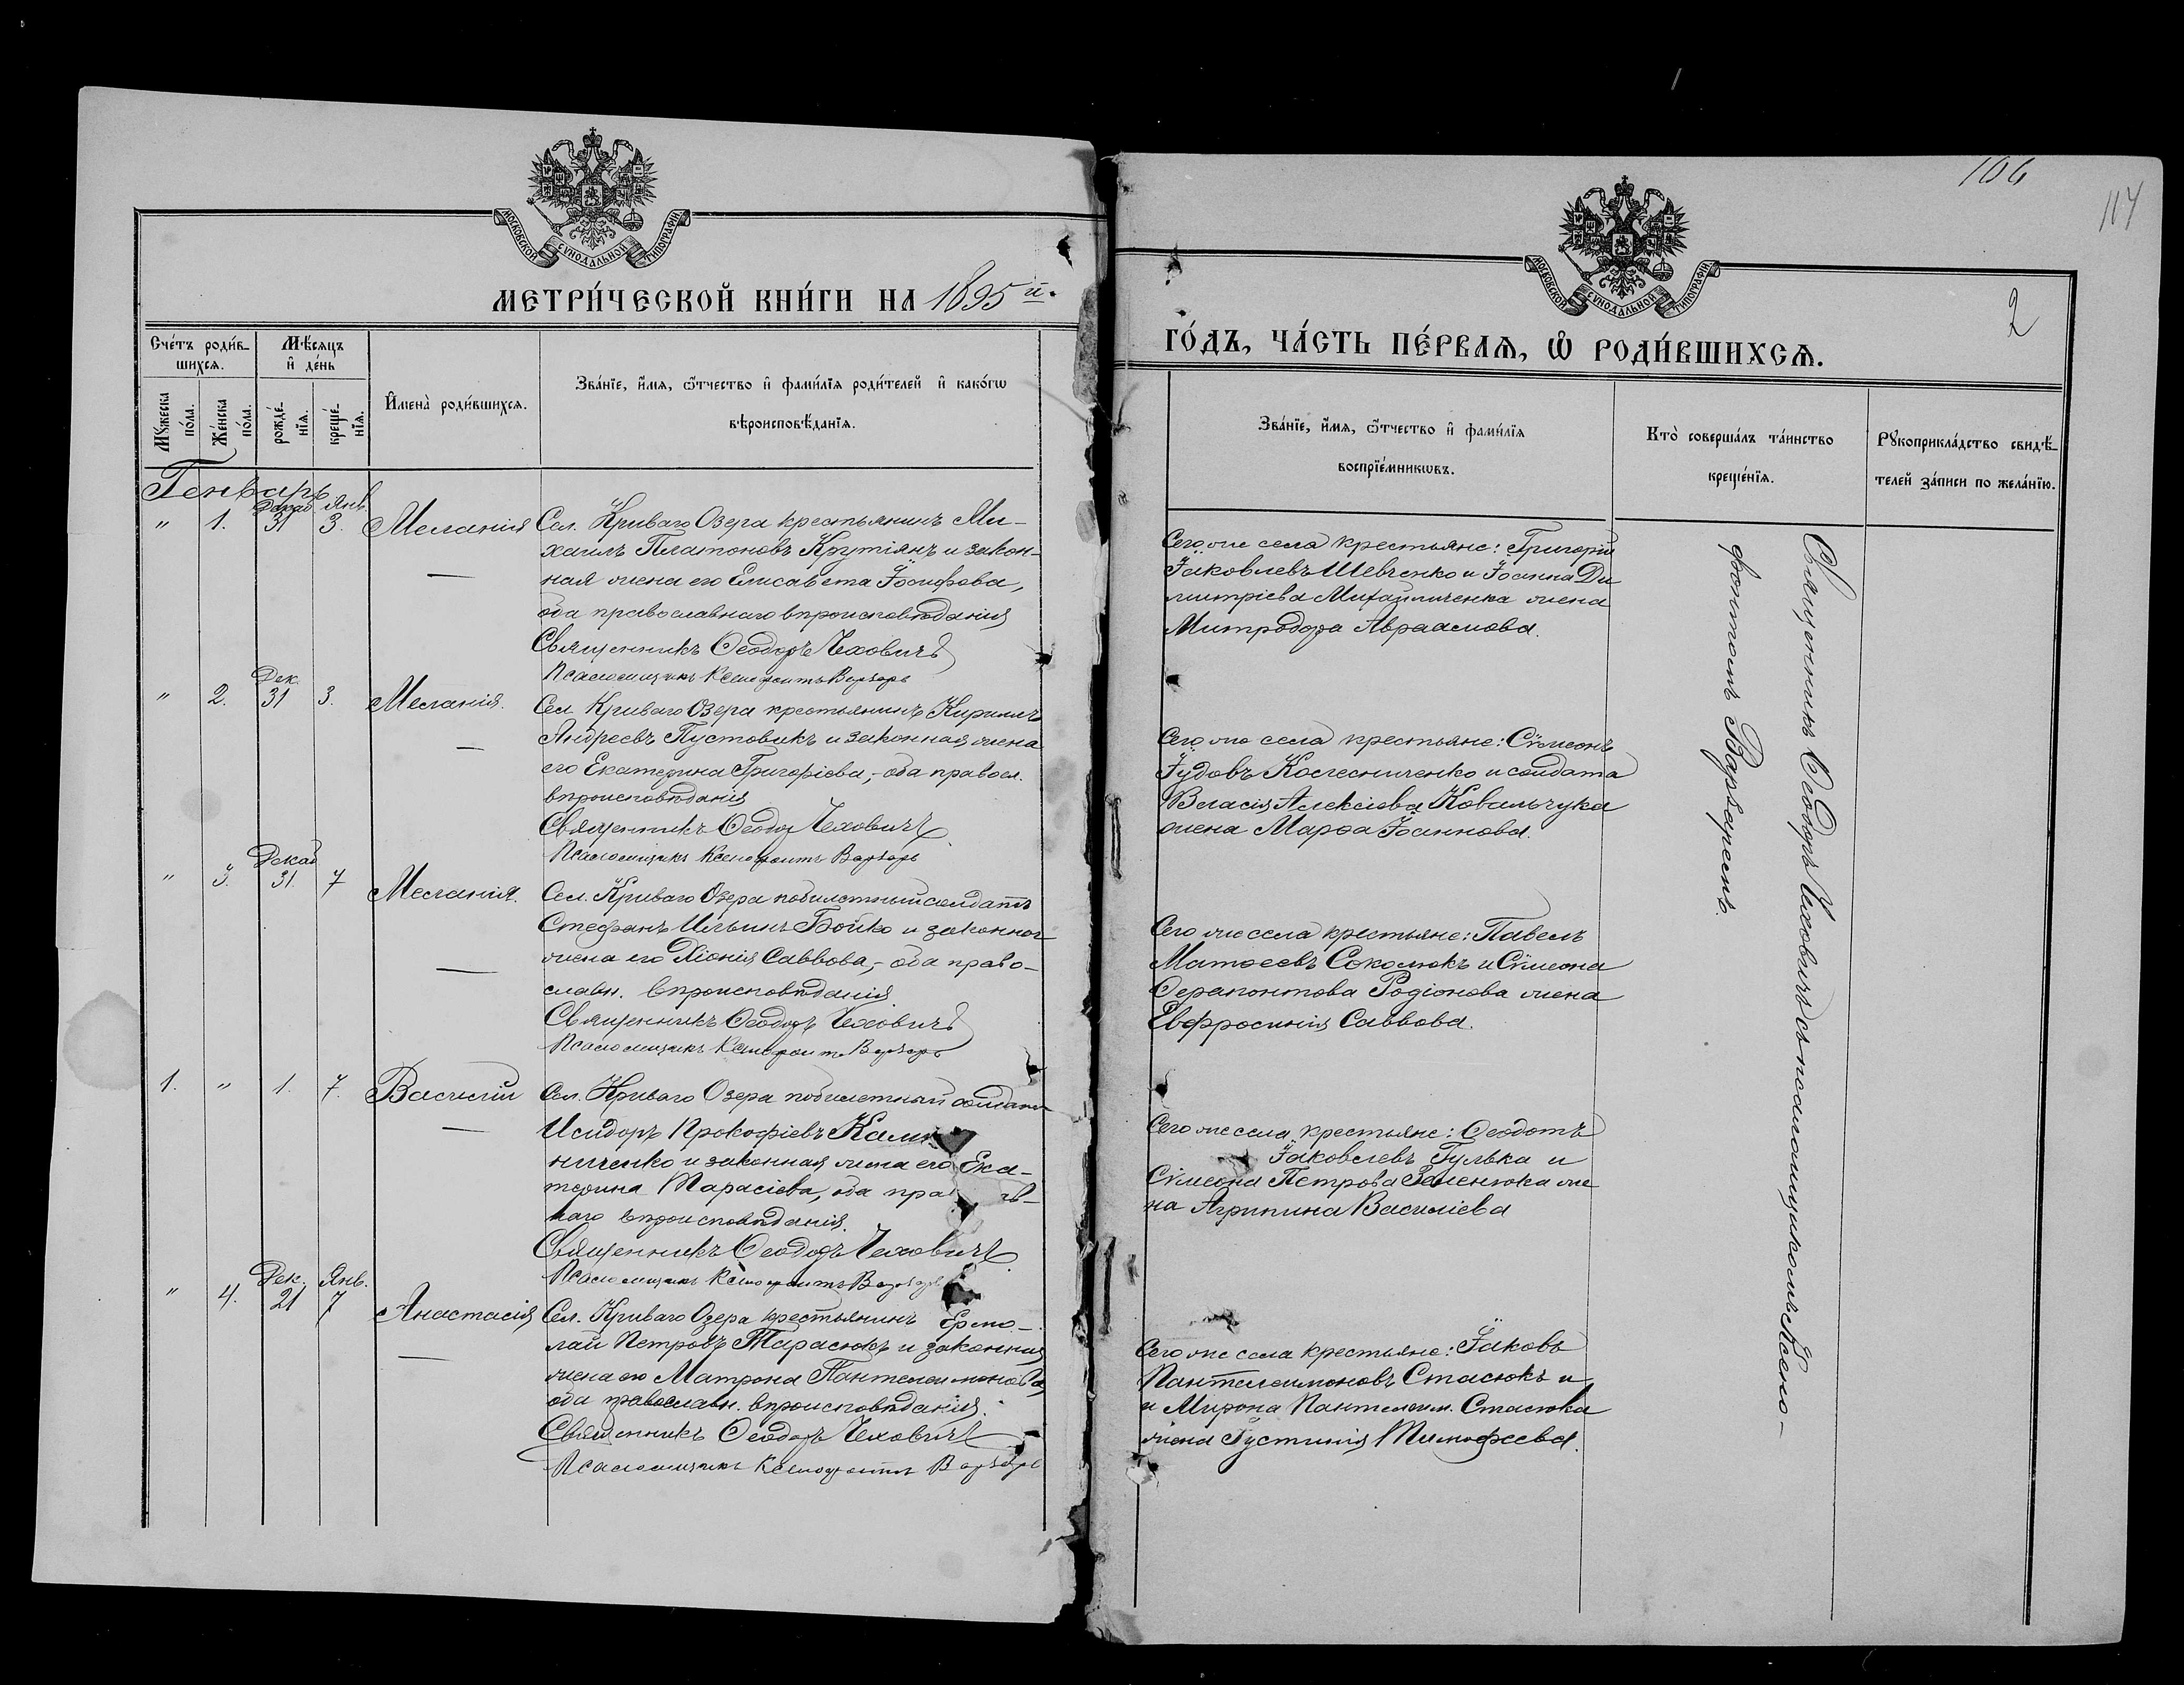 106
114
2
МОСКОВСКОЙ СѴНОДАЛЬНОЙ ТИПОГРАФІИ
МЕТРИ́ЧЕСКОЙ КНИ́ГИ НА 1895 й.
Сче́тъ роди́в-
шихсѧ.
Мѣ́сяцъ
и҆ де́нь
Мꙋ́жеска
по́ла.
Же́нска
по́ла.
рожде́-
нїѧ.
креще́-
нїѧ.
И҆мена̀ роди́вшихсѧ.
Зва́нїе, и҆́мѧ, ѻ҆́тчество и҆ фами́лїѧ роди́телей и҆ како́гѡ
вѣроисповѣ́данїѧ.
Генварь
" 1. Декаб. 31 Янв. 3. Меланія
Сел. Криваго Озера крестьянинъ Ми-
хаилъ Платоновъ Крутіянъ и закон-
ная жена его Елисавета Іосифова,
оба православнаго вѣроисповѣданія
Священникъ Ѳеодоръ Чеховичъ
Псаломщикъ Ксенофонтъ
" 2. Дек. 31 3. Меланія.
Сел. Криваго Озера крестьянинъ Кириллъ
Андреевъ Пустовикъ и законная жена
его Екатерина Григоріева,- оба правосл.
вѣроисповѣданія
Священникъ Ѳеодоръ Чеховичъ
Псаломщикъ Ксенофонтъ
" 3. Декаб 31. 7 Меланія.
Сел. Криваго Озера побилетный солдатъ
Стефанъ Ильинъ Бойко и законная
жена его Хіонія Саввова,- оба право-
славн. вѣроисповѣданія.
Священникъ Ѳеодоръ Чеховичъ
Псаломщикъ Ксенофонтъ
1. " 1. 7. Василій
Сел. Криваго Озера побилетный солдатъ
Исидоръ Прокофіевъ
ниченко и законная жена его Ека-
терина Тарасіева, оба
наго вѣроисповѣданія.
Священникъ Ѳеодоръ Чеховичъ
Псаломщикъ Ксенофонтъ
" 4. Дек. 21 Янв. 7 Анастасія
Сел. Криваго Озера крестьянинъ Ермо-
лай Петровъ Тарасюкъ и законная
жена его Матрона Пантелеимонова,
оба православн. вѣроисповѣданія.
Священникъ Ѳеодоръ Чеховичъ
Псаломщикъ Ксенофонтъ
МОСКОВСКОЙ СѴНОДАЛЬНОЙ ТИПОГРАФІИ
ГО́ДЪ, ЧА́СТЬ ПЕ́РВАЯ, Ѽ РОДИ́ВШИХСѦ.
Зва́нїе, и҆́мѧ, ѻ҆́тчество и҆ фами́лїѧ
воспрїе́мникѡвъ.
Кто̀ соверша́лъ та́инство
креще́нїѧ.
Рꙋкоприкла́дство свидѣ́-
телей за́писи по жела́нїю.
Сего же села крестьяне: Григорій
Іаковлевъ Шевченко и Іоанна Ди
митріева Михайличенка жена
Митродора Авраамова.
Сего же села крестьяне: Сѵмеонъ
Іудовъ Колесниченко и солдата
Власія Алексіева Ковальчука
жена Марѳа Іоаннова.
Сего же села крестьяне: Павелъ
Матѳеевъ Соколюкъ и Сѵмеона
Ѳерапонтова Родіонова жена
Евфросинія Саввова.
Сего же села крестьяне: Ѳеодотъ
Іаковлевъ Гулька и
Сѵмеона Петрова Зеленюка же
на Агрипина Василіева
Сего же села крестьяне: Іаковъ
Пантелеимоновъ Стасюкъ и
и Мирона Пантелеим. Стасюка
жена Іустинія Тимофеева.
Священникъ Ѳеодоръ Чеховичъ съ псаломщикомъ Ксено-
фонтомъ